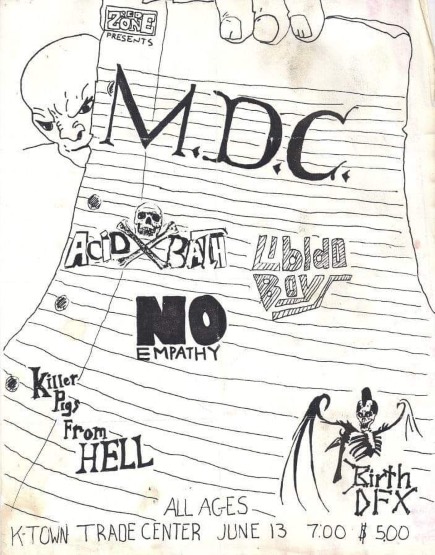 RED
ZONE
PRESENTS
M.D.C.
ACiD BATH
Libido
Boys
NO
EMPATHY
Killer
Pigs
From
HELL
Birth
DFX
ALL AGES
K-TOWN TRADE CENTER JUNE 13 7:00 $ 500